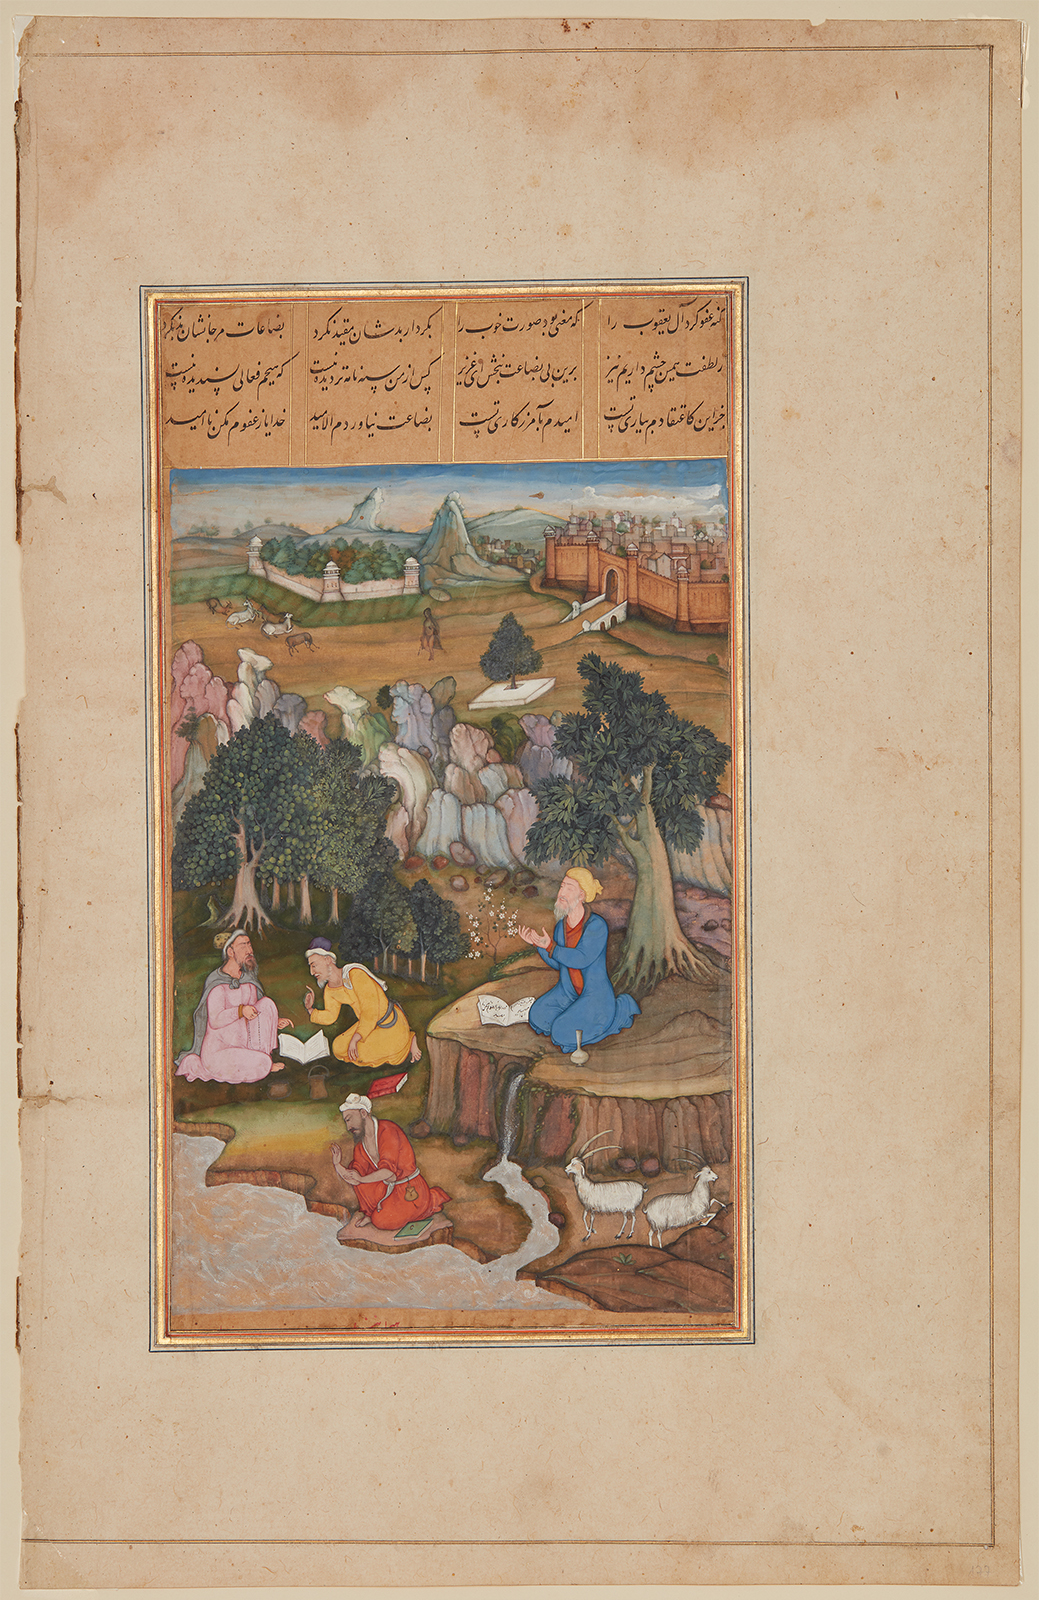 گنه عفو کرد آل یعقوب را که معنی بود صورت خوب را بکردار بدشان مقید نکرد بضاعات مزجاتشان رد نکرد
ز لطفت همین چشم داریم نیز برین بی بضاعت ببخش ای عزیز کس از من سیه نامه تر دیده نیست که هیچم فعالی پسندیده نیست
جز این کاعتقادم بیاری تست امیدم بآمرزگاری تست بضاعت نیاوردم الا امید خدایا ز عفوم مکن ناامید